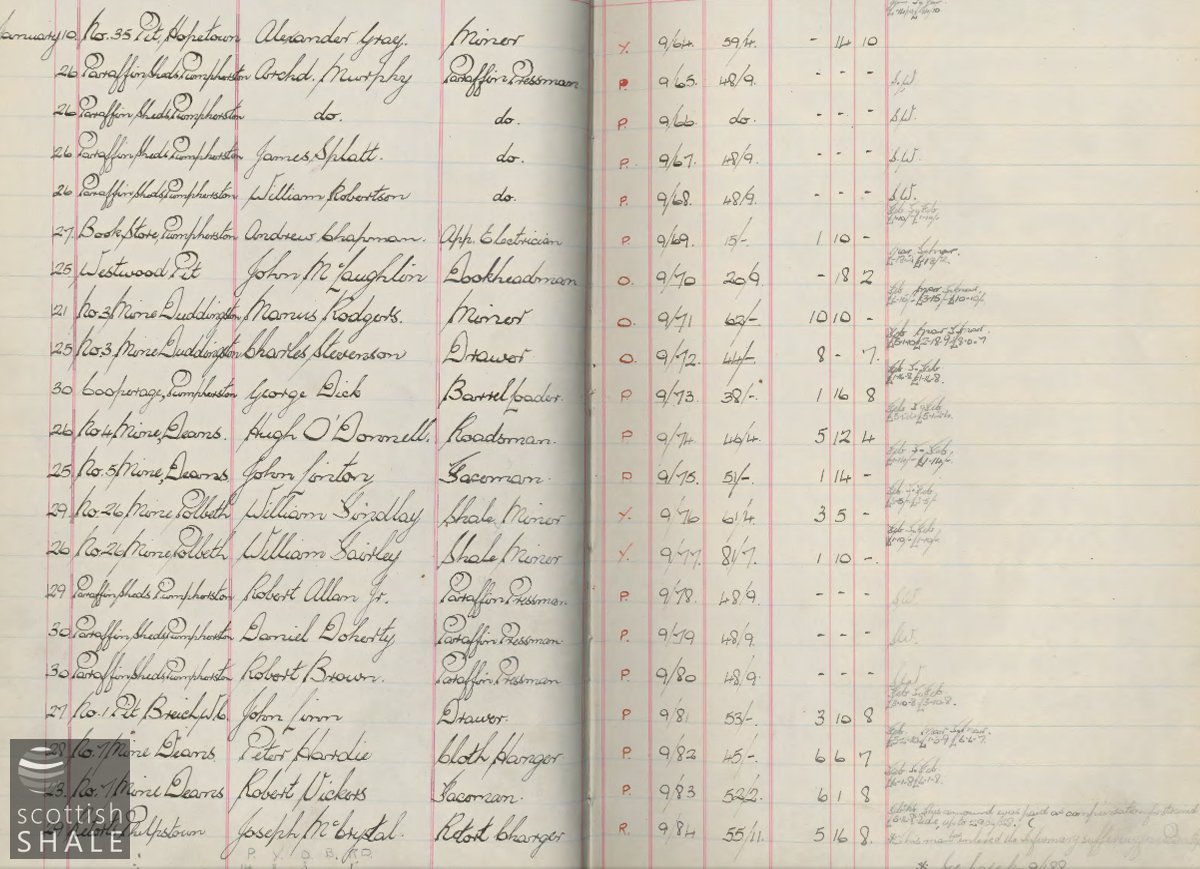 January 10 No. 35 Pit, Hopetown Alexander Gray. Miner Y. 9/64. 59/4. - 14 10
26 Paraffin Sheds, Pumpherston Archd. Murphy Paraffin Pressman P. 9/65. 48/9. - - - S.W.
26 Paraffin Sheds, Pumpherston do. do. P. 9/66. do. - - - S.W.
26 Paraffin Sheds, Pumpherston James Splatt. do. P. 9/67. 48/9. - - - S.W.
26 Paraffin Sheds, Pumpherston William Robertson do. P. 9/68. 48/9. - - - S.W.
27. Book Store, Pumpherston Andrew Chapman. App. Electrician P. 9/69. 15/- 1 10 -
25, Westwood Pit John McLaughlin Dookheadsman O. 9/70 20/9. - 18 2
21 No. 3 Mine Duddingston Manus Rodgers. Miner O. 9/71 62/- 10 10 -
25 No. 3, Mine Duddingston Charles Stevenson Drawer O. 9/72. 44/- 8 - 7.
30 Cooperage, Pumpherston George Dick Barrel Loader. P. 9/73. 38/-. 1 16 8
26 No. 4 Mine, Deans. Hugh O'Donnell. Roadsman. P. 9/74 46/4. 5 12 4
25 No. 5 Mine, Deans John Linton Faceman. P. 9/75. 51/- 1 14 -
29. No. 26, Mine, Polbeth William Findlay Shale Miner Y. 9/76 61/4. 3 5 -
26 No. 26 Mine, Polbeth William Fairley Shale Miner Y. 9/77. 81/7. 1 10 -
29 Paraffin Sheds Pumpherston Robert Allan Jr. Paraffin Pressman P. 9/78. 48/9. - - - S.W.
30 Paraffin Sheds, Pumpherston Daniel Doherty Paraffin Pressman P. 9/79 48/9. - - - S.W.
30 Paraffin Sheds Pumpherston Robert Brown. Paraffin Pressman P. 9/80 48/9. - - - S.W.
27 No. 1 Pit Breich W.C. John Linn Drawer. P 9/81 53/-. 3 10 8
28 No. 7 Mine Deans Peter Hardie Cloth Hanger P. 9/82 45/- 6 6 7
23. No. 7 Mine Deans Robert Vickers Faceman. P. 9/83 52/2. 6 1 8
29 Retorts Philpstown Joseph McCrystal. Retort Charger R. 9/84 55/11. 5 16 8.
P. Y. O. B. R.D.
scottish
SHALE